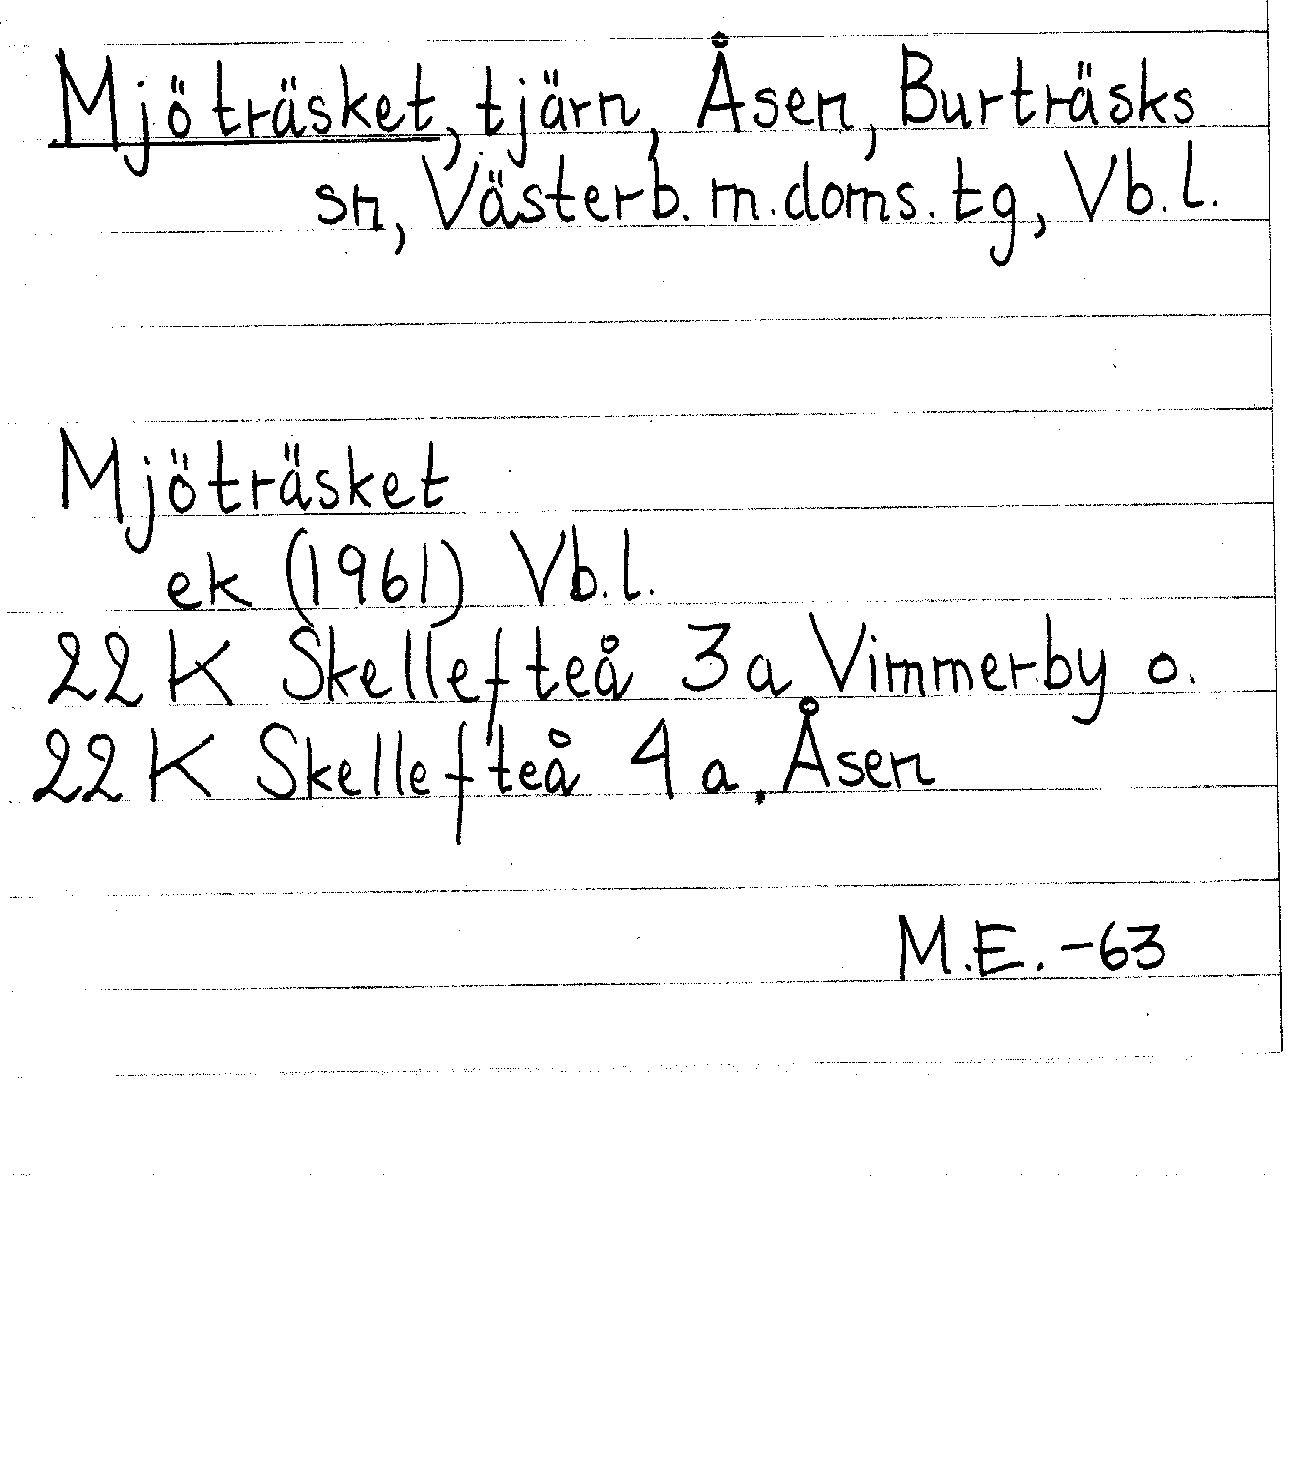 Mjöträsket, tjärn, Åsen, Burträsks
sn, Västerb. m. doms. tg, Vb. l.
Mjöträsket
ek (1961) Vb. l.
22 K Skellefteå 3a Vimmerby o.
22 K Skellefteå 4a. Åsen
M.E. -63